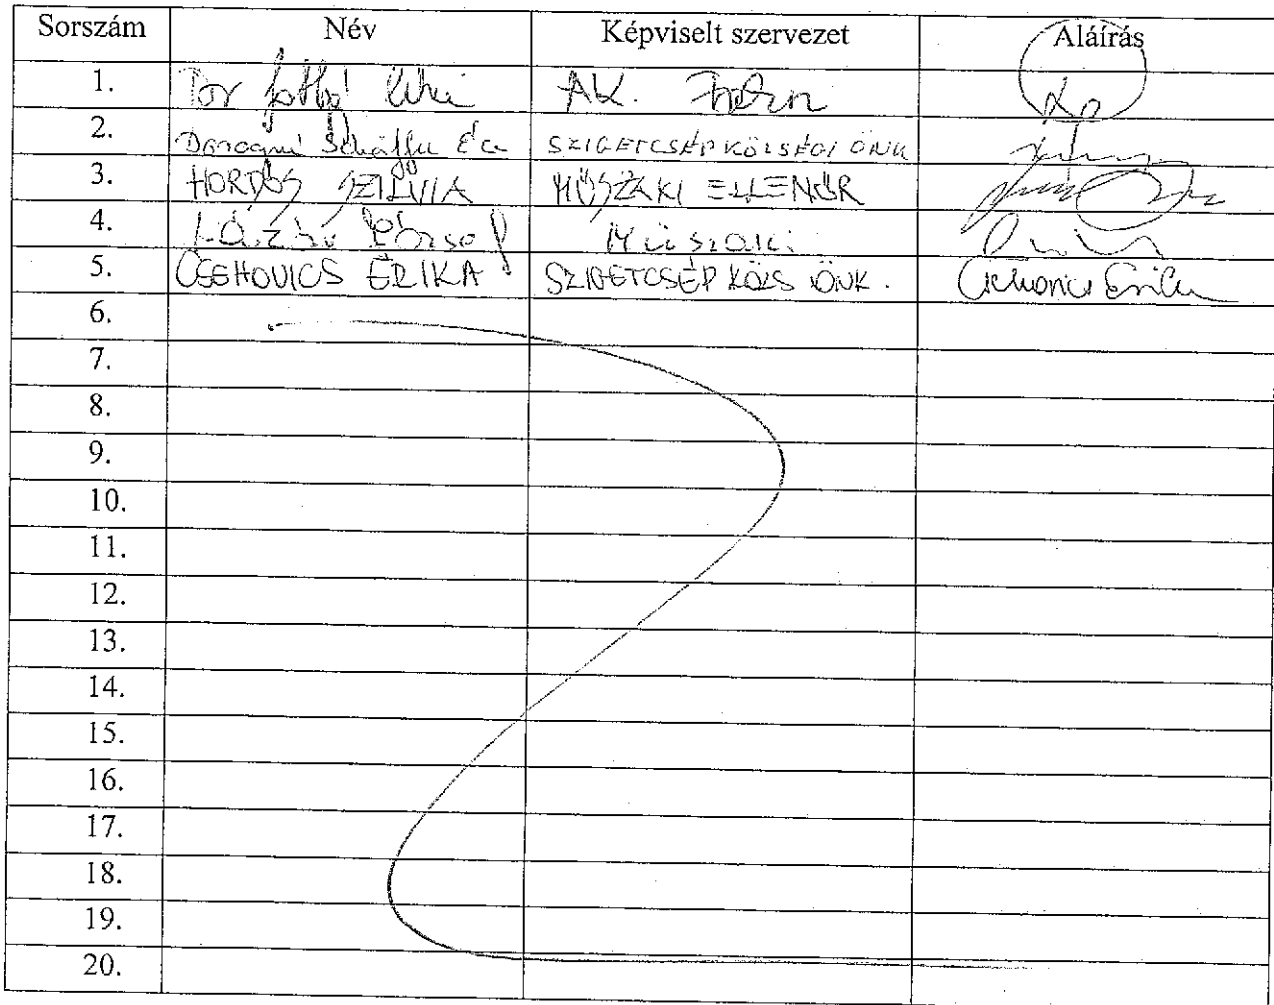 Sorszám Név Képviselt szervezet Aláírás
1. AK.
2. Daroginé Schäffer Éva SZIGETCSÉP KÖZSÉGI ÖNK
3. HORDÓS SZILVIA MŰSZAKI ELLENŐR
4. Műszaki
5. CSEHOVICS ERIKA SZIGETCSÉP KÖZS ÖNK. Csehovics Erika
6.
7.
8.
9.
10.
11.
12.
13.
14.
15.
16.
17.
18.
19.
20.